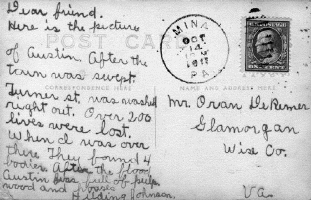 Dear friend.
Here is the picture
POST CARD
of Austin. After the
town was swept.
CORRESPONDENCE HERE
Turner st. was washed
right out. Over 200
lives were lost.
When I was over
there They found 4
bodies. After the flood
Austin was full of pulp
wood and houses
Johnson.
MINA
OCT
14
1911
PA.
NAME AND ADDRESS HERE
Mr. Oran
Glamorgan
Wise Co.
Va.